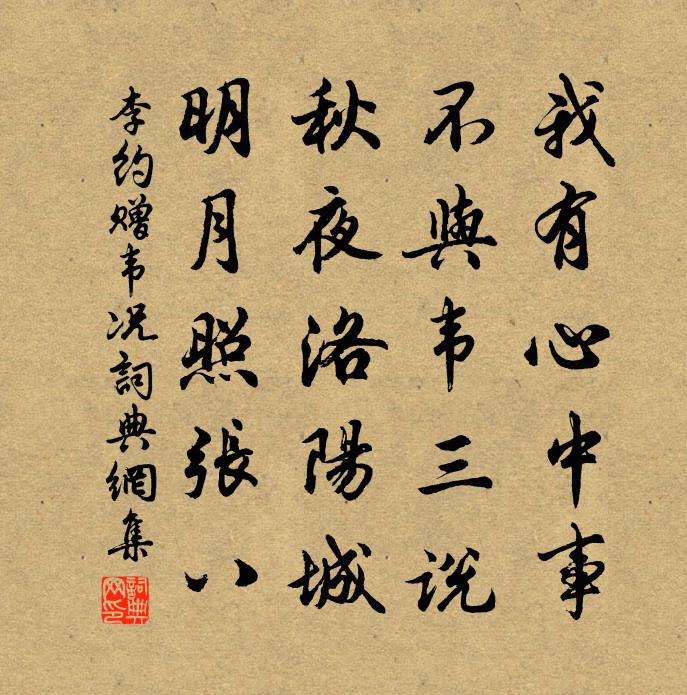 我有心中事
不與韦三説
秋夜洛陽城
明月照張八
李约赠韦况詞典網集
詞典网印